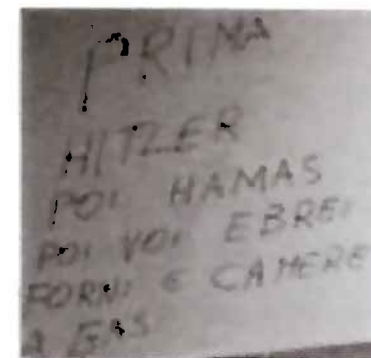 PRIMA
HITLER
POI HAMAS
POI VOI EBREI
FORNI E CAMERE
A GAS